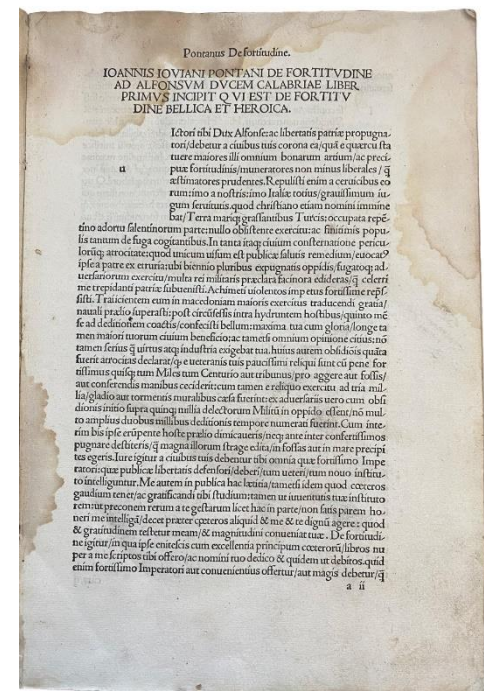 Pontanus De fortitudine.
IOANNIS IOVIANI PONTANI DE FORTITVDINE
AD ALFONSVM DVCEM CALABRIAE LIBER
PRIMVS INCIPIT Q VI EST DE FORTITV
DINE BELLICA ET HEROICA.
u
Ictori tibi Dux Alfonse: ac libertatis patriæ propugna
tori/debetur a ciuibus tuis corona ea/quā e quercu sta
tuere maiores illi omnium bonarum artium/ac preci
puæ fortitudinis/muneratores non minus liberales / q̃
æstimatores prudentes. Repulisti enim a ceruicibus eo
rum: imo a nostris: imo Italiæ totius/grauissimum iu
gum seruitutis. quod christiano etiam nomini immine
bat/Terra mariq; grassantibus Turcis: occupata repē
tino adortu salentinorum parte: nullo obsistente exercitu: ac finitimis popu
lis tantum de fuga cogitantibus. In tanta itaq; ciuium consternatione pericu
lorūq; atrocitate: quod unicum uisum est publicæ salutis remedium/euocatꝰ
ipse a patre ex etruria: ubi biennio pluribus expugnatis oppidis/fugatoq; ad
uersariorum exercitu/multa rei militaris præclara facinora edideras/q̃ celerri
me trepidanti patriæ subuenisti. Achimeti uiolentos impetus fortissime rep̄s
sisti. Traiicientem eum in macedoniam maioris exercitus traducendi gratia/
nauali prælio superasti: post circūsessis intra hydruntem hostibus/quinto mē
se ad deditionem coactis/confecisti bellum: maxima tua cum gloria/longe ta
men maiori tuorum ciuium beneficio: ac tametsi omnium opinione citius: nō
tamen serius q̃ uirtus atq; industria exigebat tua. huius autem obsidionis quāta
fuerit atrocitas declarat/q̃ e ueteranis tuis paucissimi reliqui sint cū pene for
tissimus quisq; tum Miles tum Centurio aut tribunus/pro aggere aut fossis/
aut conserendis manibus ceciderit: cum tamen e reliquo exercitu ad tria mil
lia/gladio aut tormentis muralibus cæsa fuerint: ex aduersariis uero cum obsi
dionis initio supra quinq; millia delectorum Militū in oppido essent/nō mul
to amplius duobus millibus deditionis tempore numerati fuerint. Cum inte
rim bis ipse erūpente hoste prælio dimicaueris/neq; ante inter confertissimos
pugnare destiteris/q̃ magna illorum strage edita/in fossas aut in mare precipi
tes egeris. Iure igitur a ciuibus tuis debentur tibi omnia quæ fortissimo Impe
ratori: quæ publicæ libertatis defensori/deberi/tum ueteri/tum nouo institu-
to intelliguntur. Me autem in publica hac lætitia/tametsi idem quod cœteros
gaudium tener/ac gratificandi tibi studium: tamen ut iuuentutis tuæ instituto
rem: ut preconem rerum a te gestarum licet hac in parte/non satis parem ho-
neri me intelligā/decet præter cœteros aliquid & me & te dignū agere: quod
& gratitudinem testetur meam/& magnitudini conueniat tuæ. De fortitudi-
ne igitur/in qua ipse enitescis cum excellentia principum cœterorū/libros nu
per a me scriptos tibi offero/ac nomini tuo dedico & quidem ut debitos. quid
enim fortissimo Imperatori aut conuenientius offertur/aut magis debetur/q̃
a ii